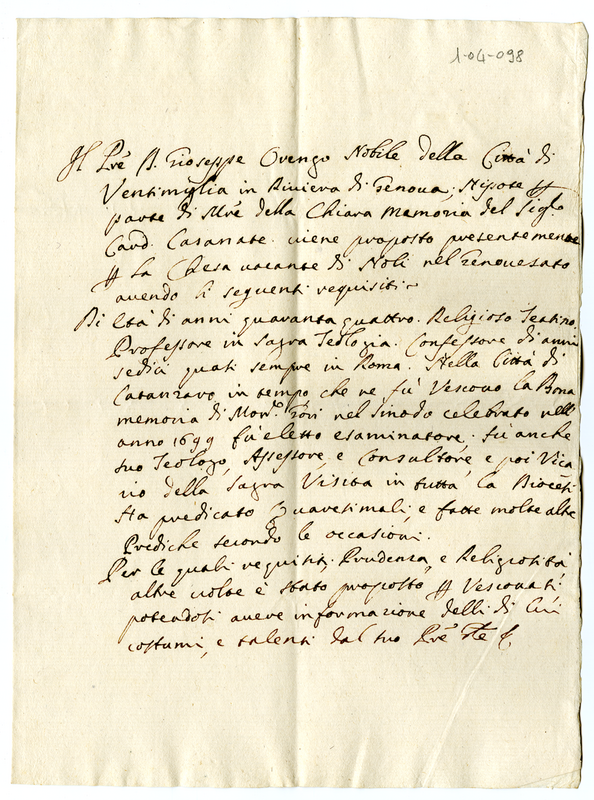 1-04-098
Il Pre D. Gioseppe Orengo Nobile della Città di
Ventimiglia in Riviera di Genova, Nipote p
parte di Mre della Chiara memoria del Sigr
Card. Casanate viene proposto presentemente
p la Chiesa vacante di Noli nel Genovesato
avendo li seguenti requisiti
Di Età di anni quaranta quattro. Religioso Teatino,
Professore in Sagra Teologia. Confessore di anni
sedici quasi sempre in Roma. Nella Città di
Catanzaro in tempo che ne fù Vescovo la Bona
memoria di Monr nel Sinodo celebrato nell'
anno 1699 fù eletto esaminatore. fù anche
suo Teologo, Assessore, e Consultore, e poi Vica
rio della Sagra Visita in tutta la Diocesi
Ha predicato Quaresimali, e fatte molte altre
Prediche secondo le occasioni.
Per le quali requisiti, Prudenza, e Religiosità
altre volte è stato proposto p Vescovati
potendosi avere informazione delli di lui
costumi, e talenti dal suo Pre